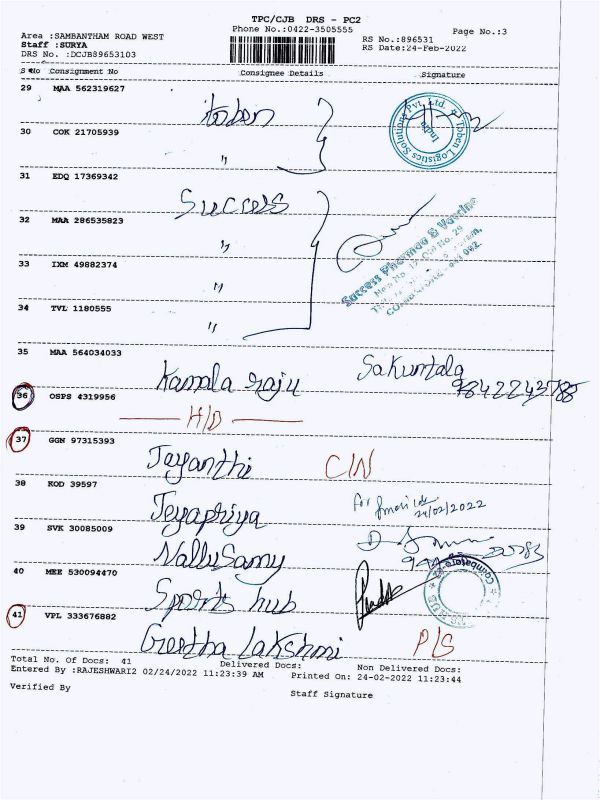 TPC/CJB DRS - PC2
Phone No.:0422-3505555
Page No.:3
Area :SAMBANTHAM ROAD WEST
Staff :SURYA
DRS No. :DCJB89653103
RS No.:896531
RS Date:24-Feb-2022
S No Consignment No Consignee Details Signature
29 MAA 562319627
itoben
Ibben Logistics Solutions Pvt. Ltd.
India
30 COK 21705939
"
31 EDQ 17369342
Success
32 MAA 286535823
"
Success Pharmaa & Vaccine
33 IXM 49882374
"
34 TVL 1180555
"
35 MAA 564034033
Kamala raju Sakuntala
9842243785
36 OSPS 4319956
H/D
37 GGN 97315393
Jayanthi C/N
38 KOD 39597
Jeyapriya
24/02/2022
39 SVK 30085009
Nallusamy
40 MEE 530094470
Sports hub
Coimbatore
41 VPL 333676882
Geetha Lakshmi P/S
Total No. Of Docs: 41 Delivered Docs: Non Delivered Docs:
Entered By :RAJESHWARI2 02/24/2022 11:23:39 AM Printed On: 24-02-2022 11:23:44
Verified By
Staff Signature